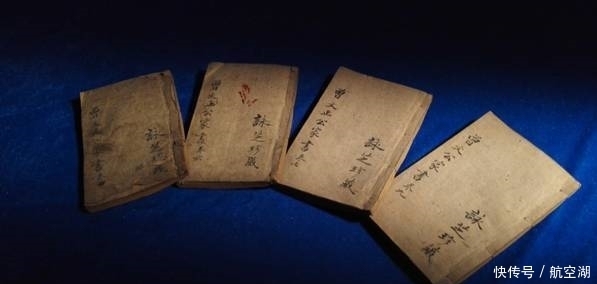 詠芝珍藏
曾文正公家書卷六
詠芝珍藏
曾文正公家書卷七
詠芝珍藏
曾文公家書卷九
詠芝珍藏
快传号/航空湖